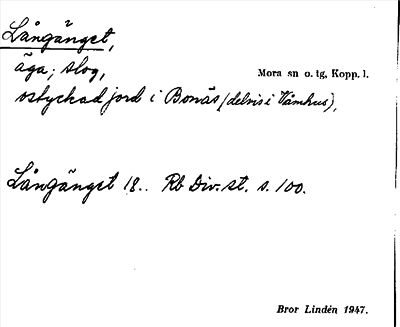 Långänget,
äga; slog,
Mora sn o. tg, Kopp. l.
ostyckad jord i Bonäs (delvis i Våmhus),
Långänget 18.. Rb Div. st. s. 100.
Bror Lindén 1947.